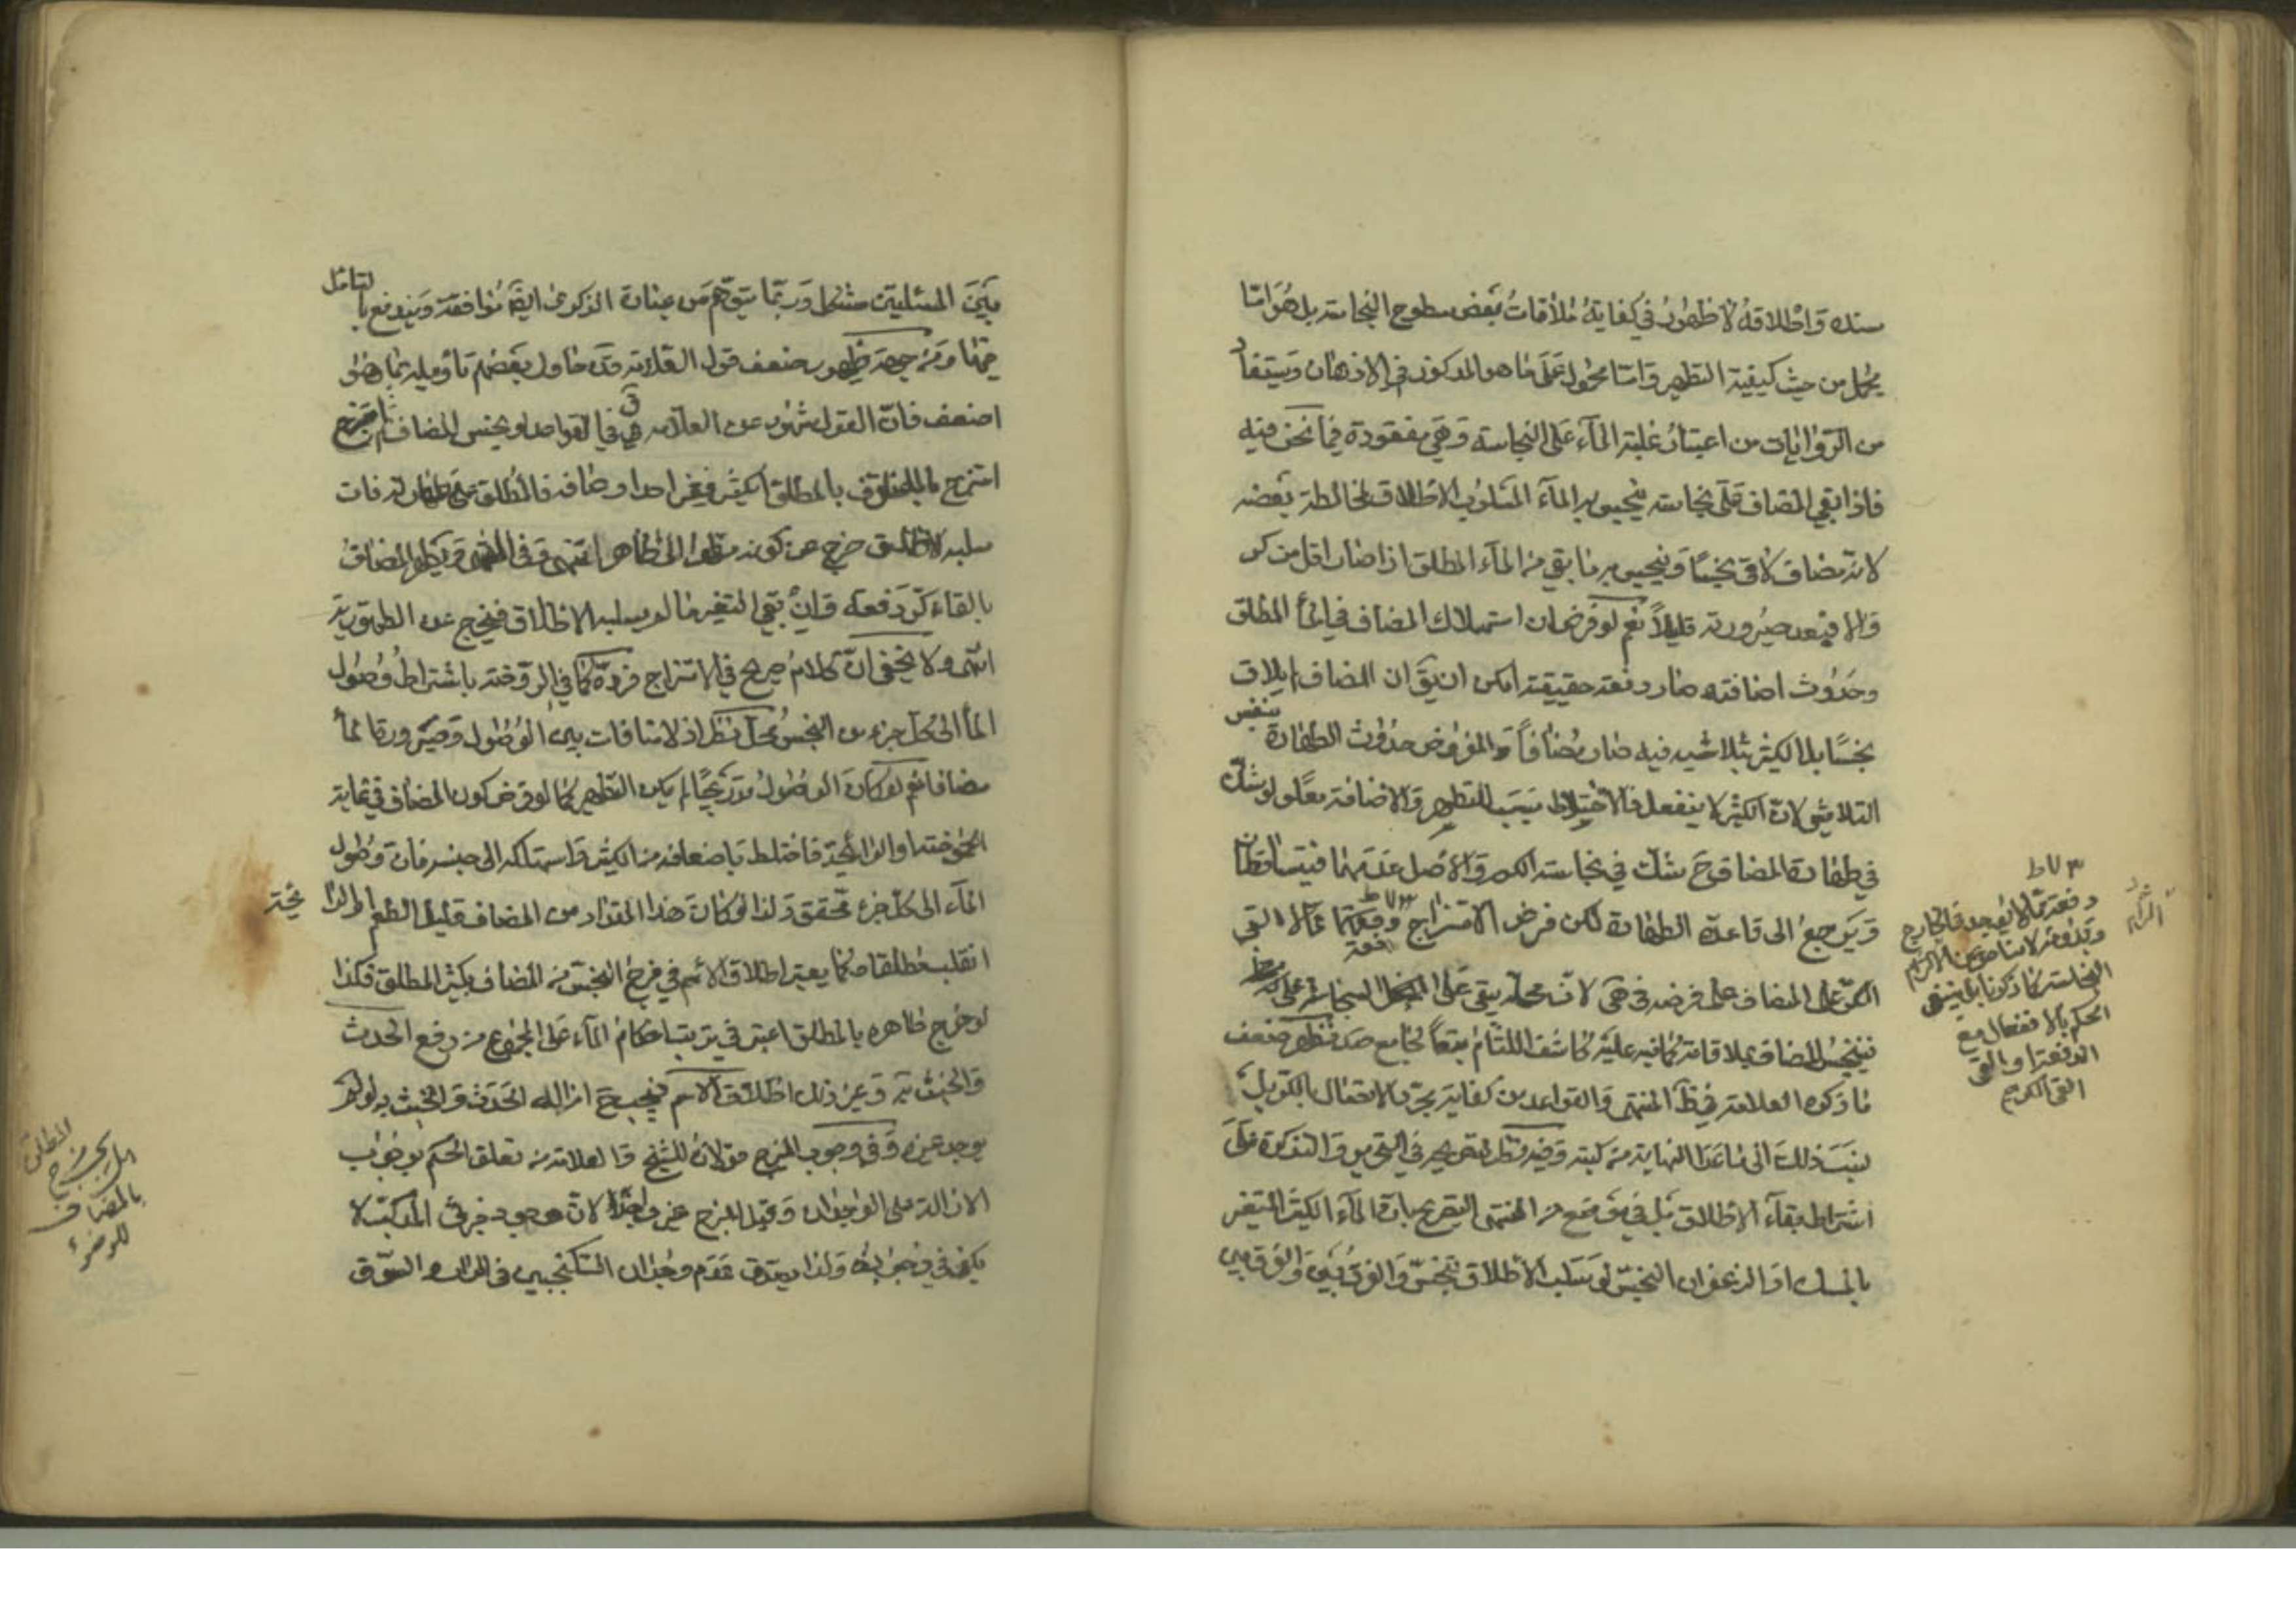 سنده واطلاقه لا ظهور في كفاية ملاقات بعض سطوح النجاسة بل هو امّا
مجمل من حيث كيفية التطهير وامّا محمول على ما هو المركوز في الاذهان ويستفاد
من الروايات من اعتبار غلبة المآء على النجاسة وهي مفقودة فيما نحن فيه
فاذا بقي المضاف على نجاسته ينجس به المآء المسلوب الاطلاق لمخالطة بعضه
لانه مضاف لاقى نجسًا وينجس به ما بقي من المآء المطلق اذا صار اقل من كر
والا فيبعد صيرورته قليلاً نعم لو فرض ان استهلاك المضاف في المآء المطلق
وحدوث اضافته صار دفعة حقيقية امكن ان يقّ ان المضاف لم يلاق
نجسًا بل الكثير بتلاشيه فيه صار مضافاً والمفروض حدوث الطهارة بنفس
التلاشي لان الكثير لا ينفعل فالاختلاط سبب للتطهير والاضافة معًا ولو شكّ
في طهارة المضاف ح شك في نجاسة الكر والاصل عدمهما فيتساقطان
ويرجع الى قاعدة الطهارة لكن فرض الامتزاج دفعة ممّا لا القي
الكر على المضاف على فرضه في حى لانه محله يبقى على النجاسة
فينجس المضاف بملاقاته كما نبه عليه كاشف اللثام تبعاً لجامع صد فظهر ضعف
ما ذكره العلامة في ظ المنتهى والقواعد من كفاية مجرّد الاتصال بالكر بل
ينسب ذلك الى ما عدا النهاية من كتبه وفيه نظر لتصريحه في التحرير والتذكرة على
اشتراط بقآء الاطلاق بل في موضع من المنتهى التصريح بان المآء الكثير المتغير
بالمسك او الزعفران النجس لو سلب الاطلاق تنجس والفرق بين والفرق بين
دفعة ممّا لا يوجد في الخارج
النجاسة كما ذكرنا بل ينبغي
الحكم بالانفعال مع
الدفعة او القي
القى الكر
بين المسئلتين مشكل وربّما يتوهم من عبارة الذكرى ايضًا موافقته ويندفع بالتأمل
فيها ومن جهة ظهور ضعف قول العلامة قد حاول بعضهم تأويله بما هو
اضعف فان القول مشهور عن العلامة قى ففي القواعد لو نجس المضاف ثم امتزج
بالمطلق الكثير فغيّر احد اوصافه فالمطلق على طهارته فان
سلبه الاطلاق خرج عن كونه مطهرا الى طاهرا انتهى وفي المنتهى ويطهر المضاف
بالقاء كر دفعة وان بقي التغير ما لم يسلبه الاطلاق فيخرج عن الطهورية
انتهى ولا يخفى انّ كلامه صريح في الامتزاج فرده كما في الروضة باشتراط وصول
المآ الى كل جزء من النجس محل نظر اذ لا منافات بين الوصول وصيرورتها ماءً
مضافا نعم لو كان الوصول تدريجيًا لم يكن التطهير كما لو فرض كون المضاف في نهاية
الحموضة او الرائحة فاختلط باضعافه من الكثير واستهلكه الى جنسه فان وصول
المآء الى كل جزء محقق ولذا لو كان هذا المقدار من المضاف قليل الطعم او الرائحة
انقلب مطلقا وكما يعتبر اطلاق الاسم في مزج النجس من المضاف بكثير المطلق فكذا
لو مزج طاهره بالمطلق اعتبر في ترتيب احكام المآء على المجموع من رفع الحدث
والخبث به وغير ذلك اطلاق الاسم فيجب ح ازالة الحدث والخبث به لو لم
يوجد غيره وفي وجوب المزج قولان للشيخ والعلامة من تعلق الحكم بوجوب
الازالة على الوجدان وقبل المزج غير واجد لان وجود جزئي المركب لا
يكفي في وجوده ولذا يصدق عدم وجدان السكنجبين في الدار والسوق
المطلق
بالمضاف
للوضوء